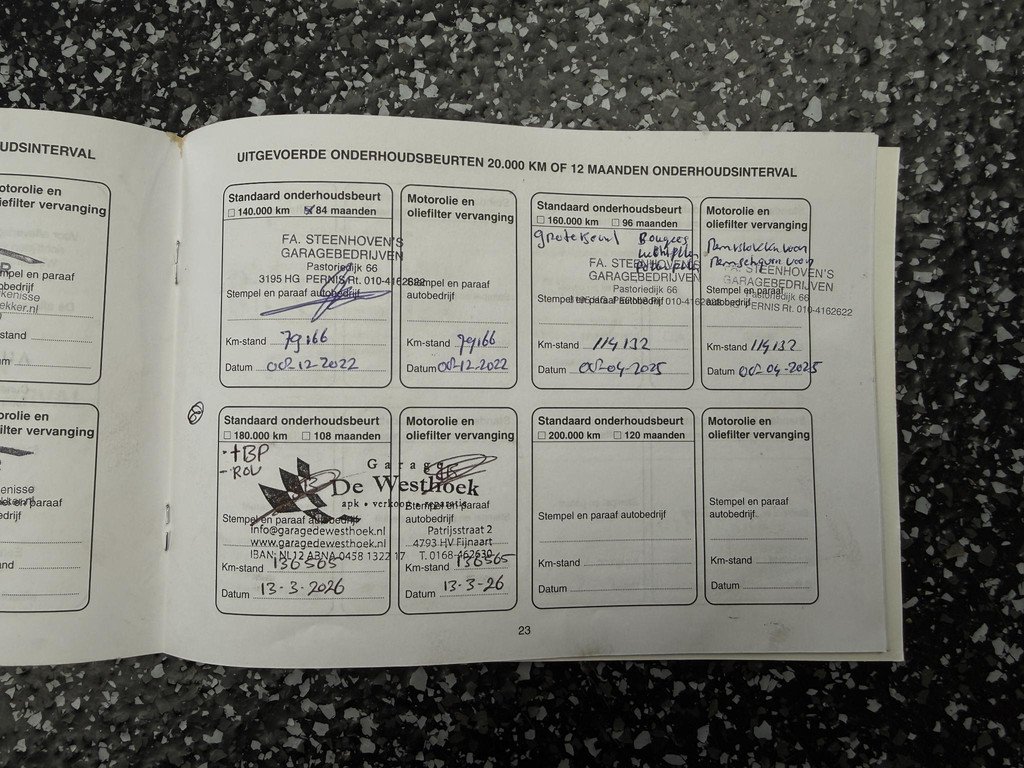 UDSINTERVAL
otorolie en
liefilter vervanging
empel en paraaf
edrijf
kenisse
ekker.nl
stand
um
orolie en
ilter vervanging
enisse
el en paraaf
drijf
and
m
UITGEVOERDE ONDERHOUDSBEURTEN 20.000 KM OF 12 MAANDEN ONDERHOUDSINTERVAL
Standaard onderhoudsbeurt
140.000 km 84 maanden
FA. STEENHOVEN'S
GARAGEBEDRIJVEN
Pastoriedijk 66
3195 HG PERNIS Rt. 010-4162622
Stempel en paraaf autobedrijf
Km-stand 79166
Datum 08-12-2022
Motorolie en
oliefilter vervanging
Stempel en paraaf
autobedrijf
Km-stand 79166
Datum 08-12-2022
Standaard onderhoudsbeurt
160.000 km 96 maanden
grote beurt Bougies
FA. STEENHOVEN'S
GARAGEBEDRIJVEN
Pastoriedijk 66
PERNIS Rt. 010-4162622
Stempel en paraaf
autobedrijf
Km-stand 114132
Datum 08-04-2025
Motorolie en
oliefilter vervanging
Remblokken voor
Remschijven voor
FA. STEENHOVEN'S
GARAGEBEDRIJVEN
Stempel en paraaf
Pastoriedijk 66
autobedrijf
PERNIS Rt. 010-4162622
Km-stand 114132
Datum 08-04-2025
Standaard onderhoudsbeurt
180.000 km 108 maanden
+BP
Garage
De Westhoek
apk • verkoop • reparatie
Stempel en paraaf autobedrijf
info@garagedewesthoek.nl
www.garagedewesthoek.nl
IBAN: NL12 ABNA 0458 1322 17
Km-stand 136565
Datum 13-3-2026
Motorolie en
oliefilter vervanging
Stempel en paraaf
autobedrijf
Patrijsstraat 2
4793 HV Fijnaart
T. 0168-462630
Km-stand 136565
Datum 13-3-26
Standaard onderhoudsbeurt
200.000 km 120 maanden
Stempel en paraaf autobedrijf
Km-stand
Datum
Motorolie en
oliefilter vervanging
Stempel en paraaf
autobedrijf
Km-stand
Datum
23